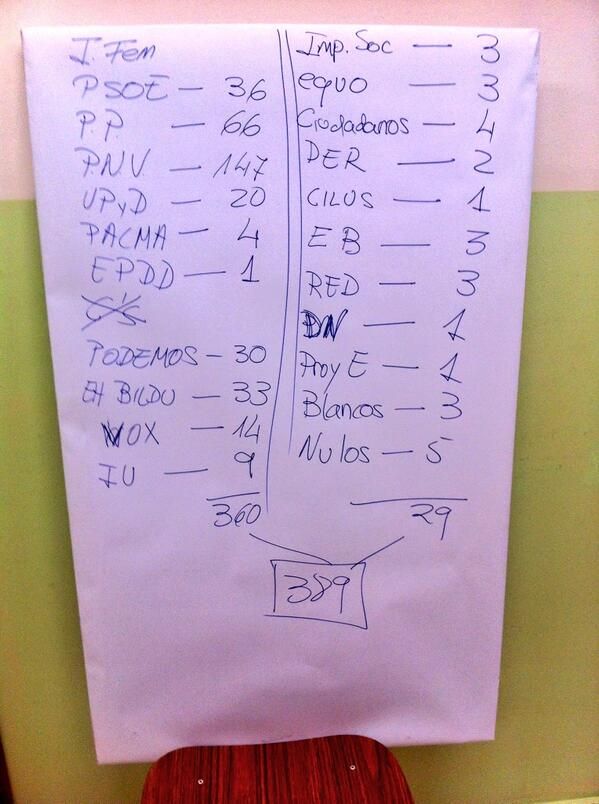 I. Fem
PSOE — 36
P.P — 66
P.N.V. — 147
UPyD — 20
PACMA — 4
EPDD — 1
C's
PODEMOS — 30
EH BILDU — 33
VOX — 14
IU — 9
360
Imp. Soc — 3
equo — 3
Ciudadanos — 4
DER — 2
CILUS — 1
EB — 3
RED — 3
DN — 1
Proy E — 1
Blancos — 3
Nulos — 5
29
389